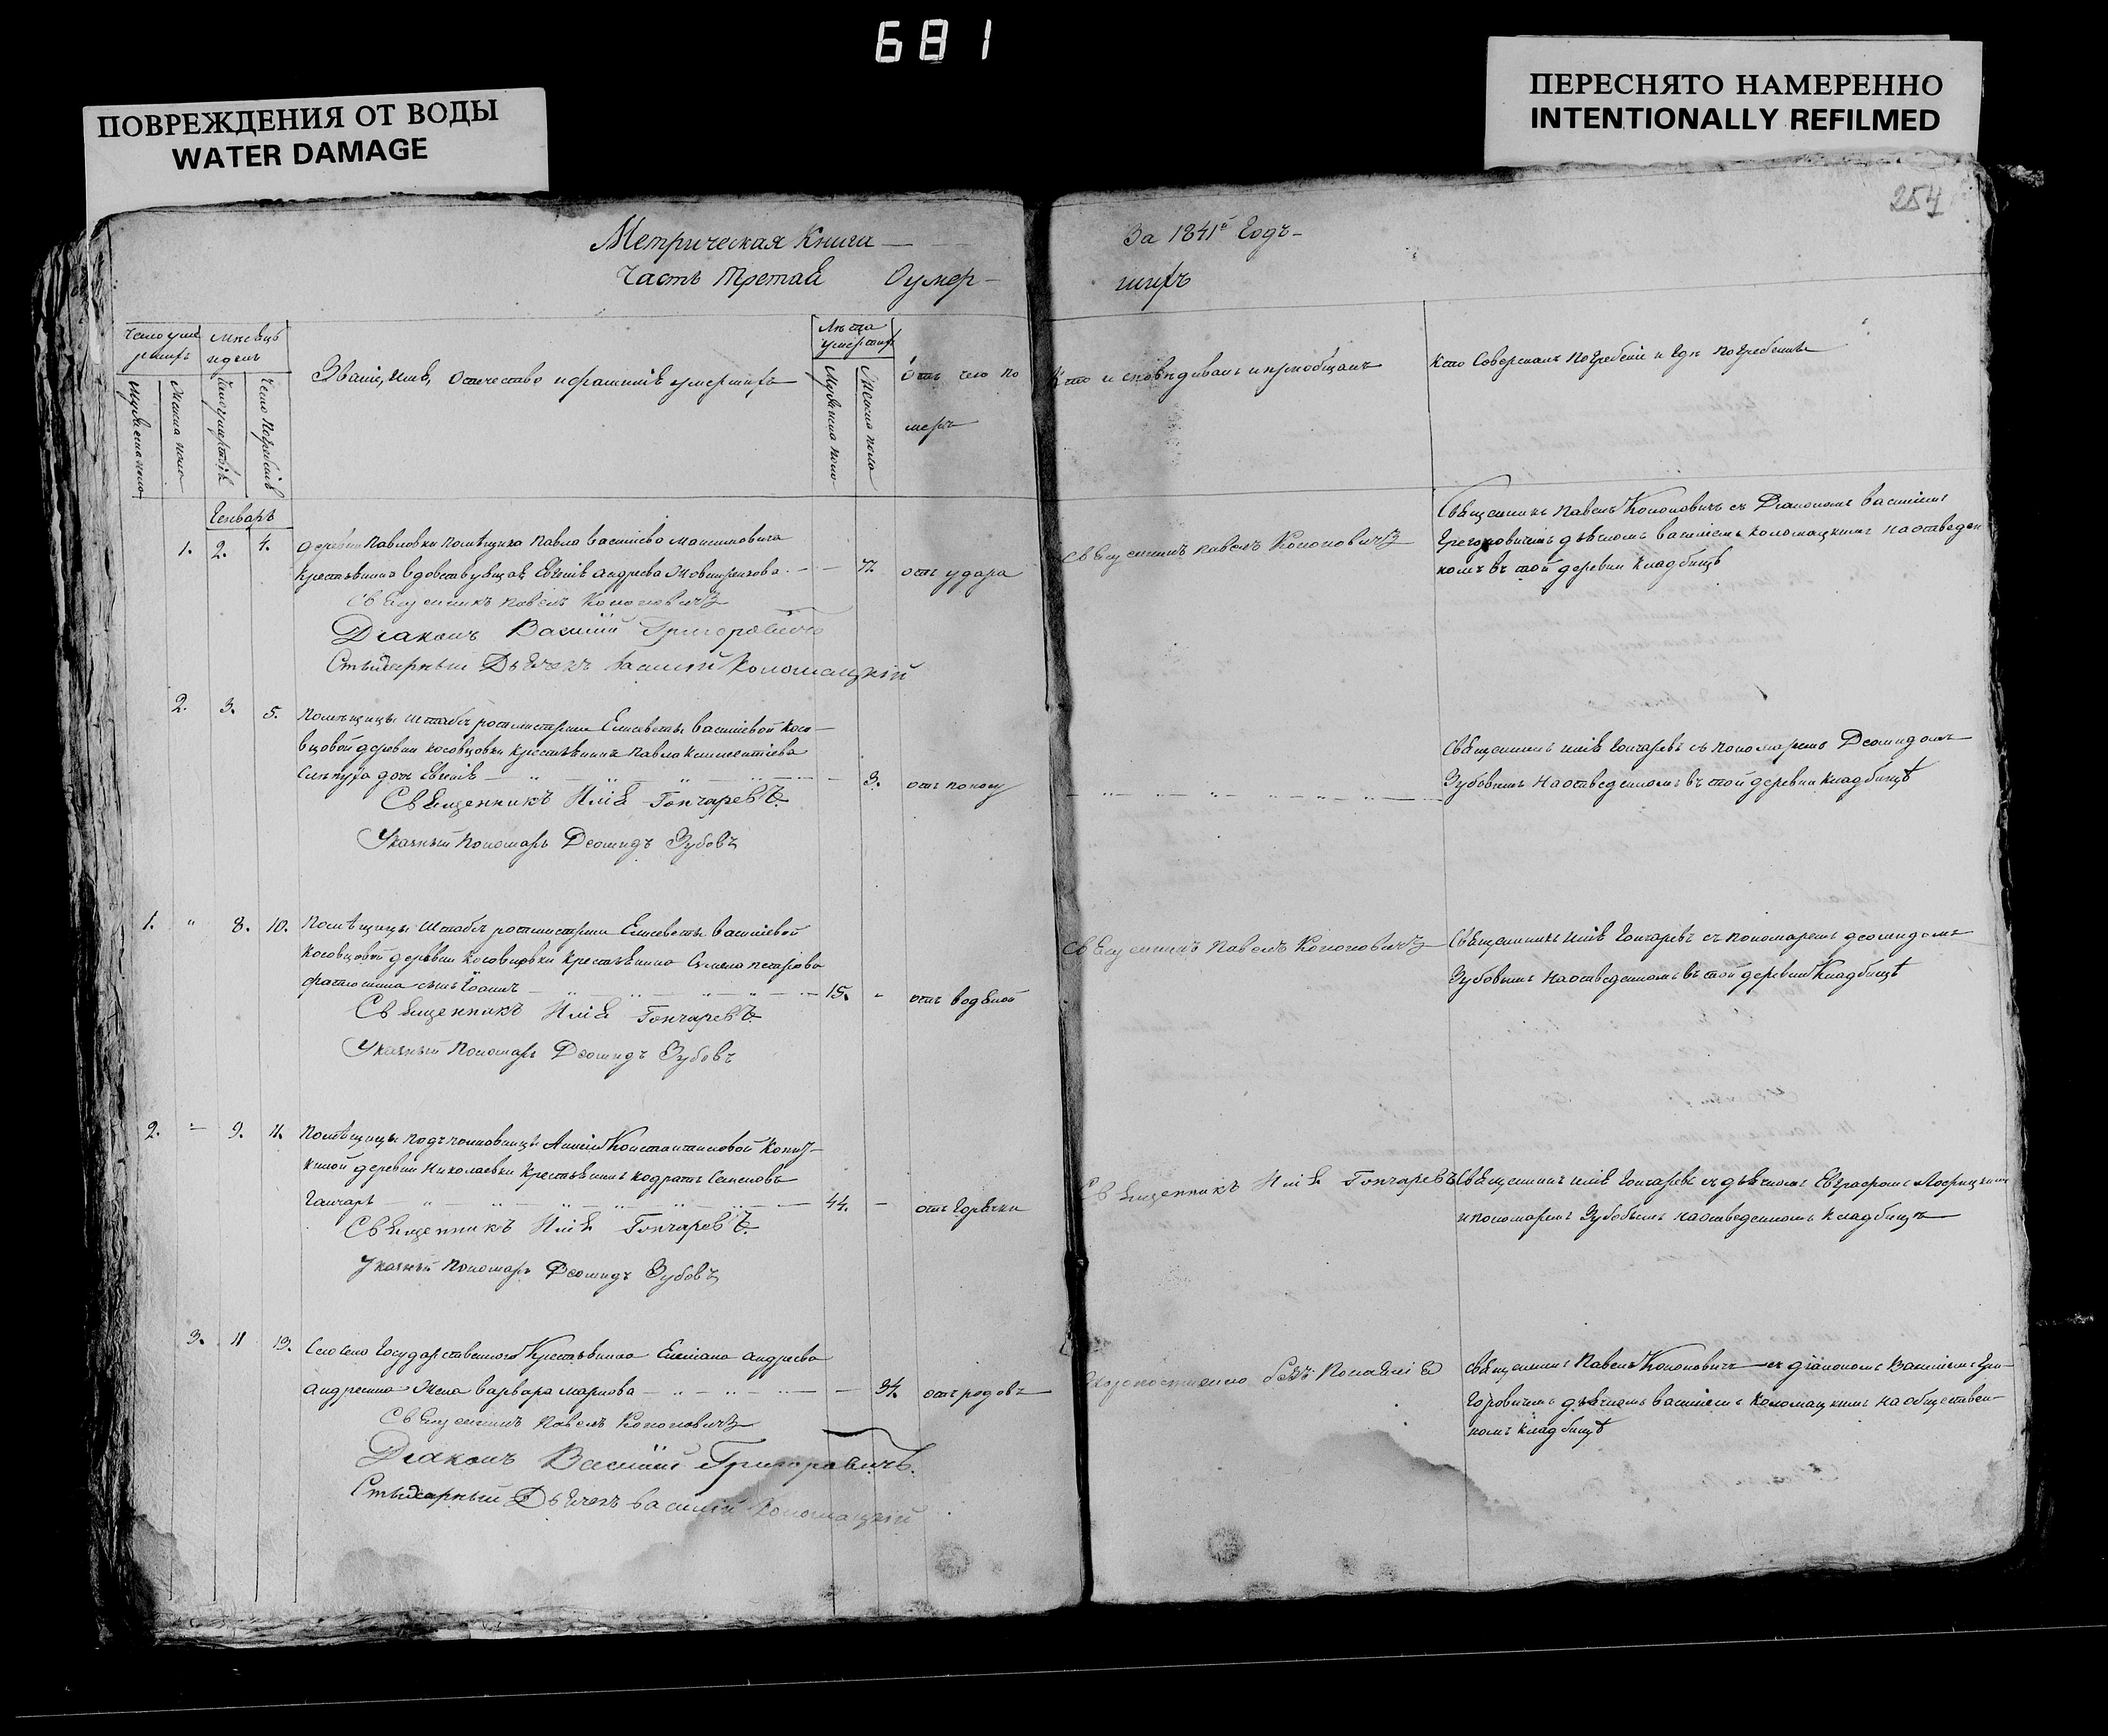 681
ПОВРЕЖДЕНИЯ ОТ ВОДЫ
WATER DAMAGE
ПЕРЕСНЯТО НАМЕРЕННО
INTENTIONALLY REFILMED
254
Метрическая Книга
За 1841й Годъ
Часть Третая
Оумер-
шихъ
Число умершихъ
Мѣсяцъ и день
Званіе, Имя, Отечество и фамилія умершихъ
Лѣта умершихъ
Отъ чего померъ
Кто исповѣдивалъ и пріобщалъ
Кто Совершалъ погребеніе и гдѣ погребенъ
Мужеска пола
Женска пола
Число смерти
Число погребенія
Мужеска пола
Женска пола
Генварь
1. 2. 4.
деревни Павловки помѣщика Павла Василіева Максимовича
крестьянина вдовствующая Евгенія Андреева 77. отъ удара
Священникъ Павелъ Кононовичъ
Священникъ Павелъ Кононовичъ съ Діакономъ Василіемъ
Григоровичемъ дьячкомъ Василіемъ Коломацкимъ на отведен
номъ въ той деревни кладбищѣ
Священникъ Павелъ Кононовичъ
Діаконъ Василій Григоровичъ
Стихарный Дьячекъ Василій Коломацкій
2. 3. 5.
Помѣщицы штабъ ротмистрши Елисаветы Василіевой Косо-
вцовой деревни Косовцовки крестьянина Павла Климентіева
дочь Евгенія 3. отъ поносу
Священникъ Илія Гончаревъ съ пономаремъ Деомидомъ
Зубовымъ на отведенномъ въ той деревни кладбищѣ
Священникъ Илія Гончаревъ
Указный Пономарь Деомидъ Зубовъ
1. " 8. 10.
Помѣщицы штабъ ротмистрши Елисаветы Василіевой
Косовцовой деревни Косовцовки крестьянина
сынъ Іоаннъ 15. - отъ водяной
Священникъ Павелъ Кононовичъ
Священникъ Илія Гончаревъ съ пономаремъ Деомидомъ
Зубовымъ на отведенномъ въ той деревни кладбищѣ
Священникъ Илія Гончаревъ
Указный Пономарь Деомидъ Зубовъ
2. - 9. 11.
Помѣщицы подъполковницы Константиновой
деревни Николаевки крестьянинъ Кодратъ Семеновъ
Ганчарь 44. - отъ горячки
Священникъ Илія Гончаревъ
Священникъ Илія Гончаревъ съ дьячкомъ Евграфомъ
и пономаремъ Зубовымъ на отведенномъ кладбищѣ
Священникъ Илія Гончаревъ
Указный Пономарь Деомидъ Зубовъ
3. 11 13.
Сего Села Государственнаго крестьянина Емеліана Андреева
жена Варвара Маркова 34. отъ родовъ
Скоропостижно безъ покаянія
Священникъ Павелъ Кононовичъ съ діакономъ Василіемъ Гри-
горовичемъ дьячкомъ Василіемъ Коломацкимъ на обществен-
номъ кладбищѣ
Священникъ Павелъ Кононовичъ
Діаконъ Василій Григоровичъ
Стихарный Дьячекъ Василій Коломацкій